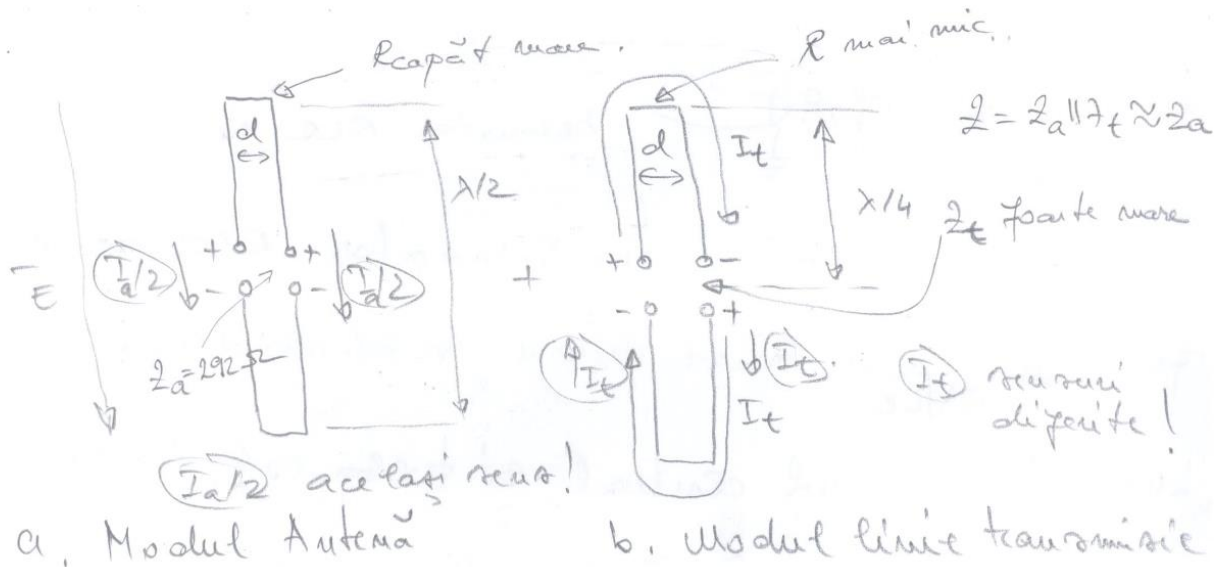 Rcapăt mare.
R mai mic
d
λ/2
d
It
λ/4
Z = Za || Zt ≈ Za
Zt foarte mare
Ē
Ia/2
+ +
- -
Ia/2
+
+ -
- +
Za = 292 Ω
It
It
It
It sensuri
diferite!
Ia/2 același sens!
a. Modul Antenă
b. Modul linie transmisie